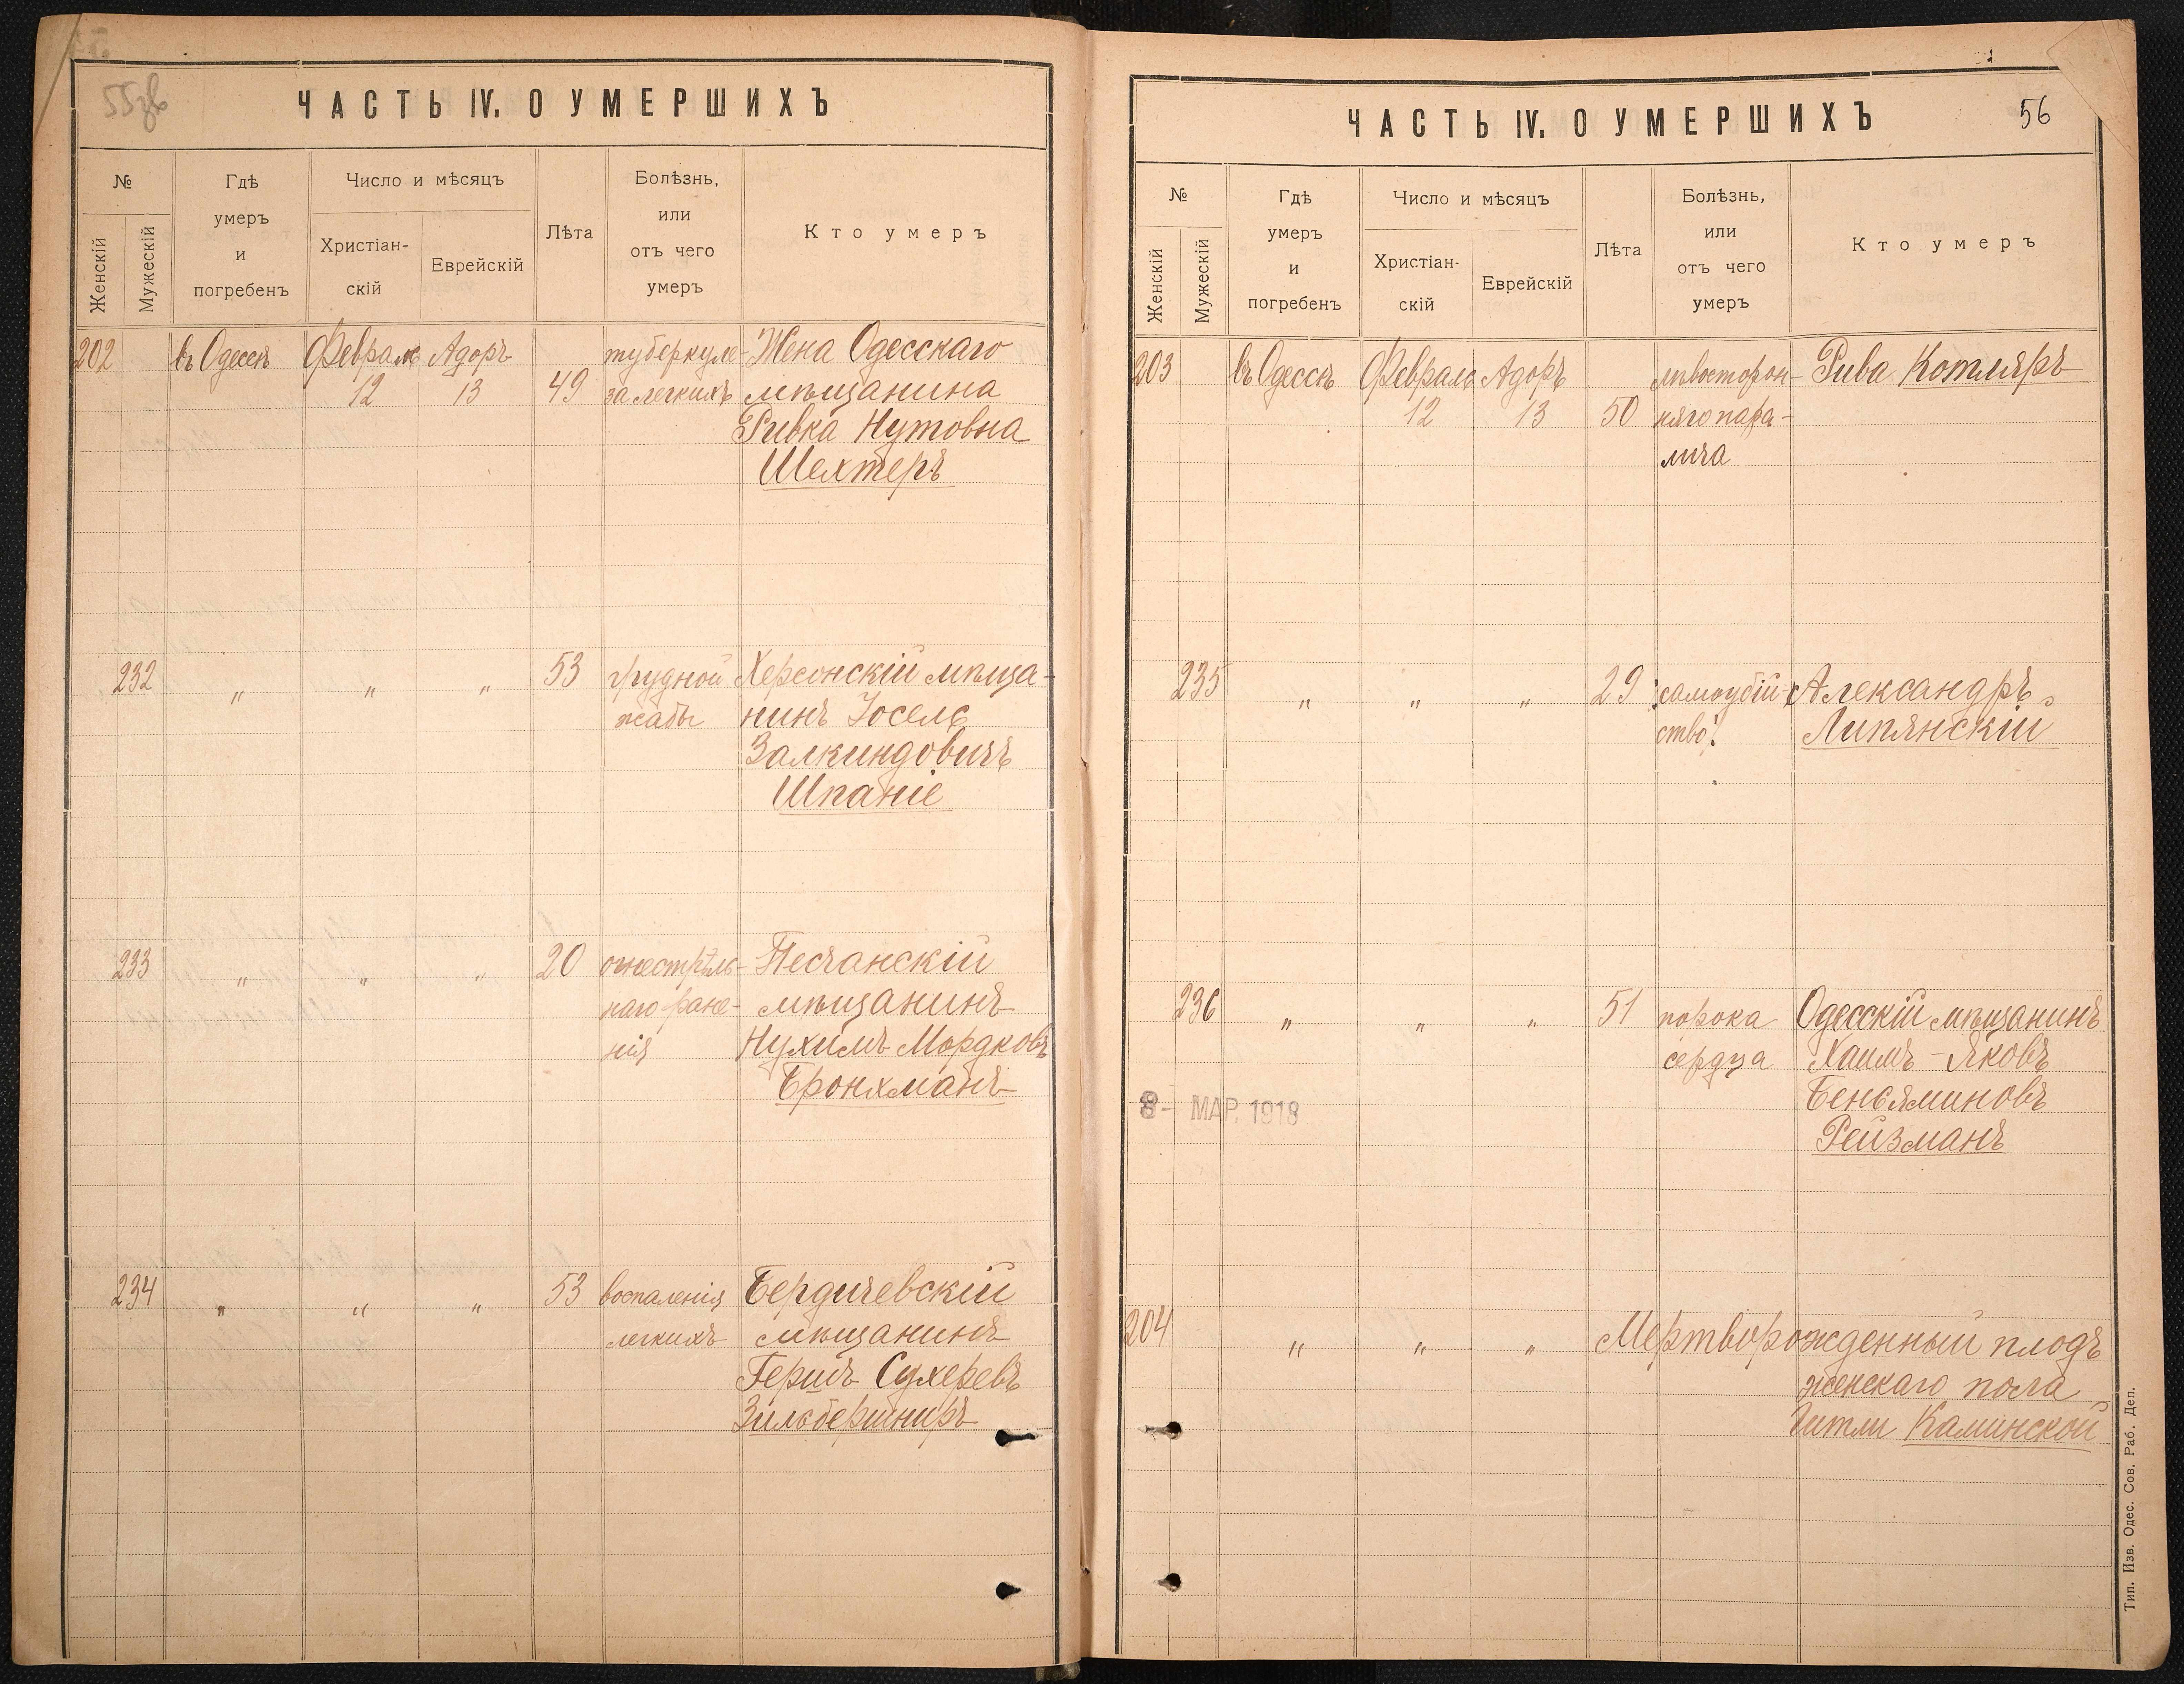 55зв
ЧАСТЬ IV. О УМЕРШИХЪ
№
Женскій
Мужескій
Гдѣ
умеръ
и
погребенъ
Число и мѣсяцъ
Христіан-
скій
Еврейскій
Лѣта
Болѣзнь,
или
отъ чего
умеръ
Кто умеръ
202 въ Одессѣ Февраля Адоръ туберкуле- Жена Одесскаго
12 13 49 за легкихъ мѣщанина
Ривка Нутовна
Шехтеръ
232 " " " 53 грудной Херсонскій мѣща-
жабы нинъ Іосель
Залкиндовичъ
Шпаніе
233 " " " 20 огнестрѣль- Песчанскій
наго ране- мѣщанинъ
нія Нухимъ Мордковъ
Бронхманъ
234 " " " 53 воспаленія Бердичевскій
легкихъ мѣщанинъ
Гершъ Сухеревъ
Зильбершниръ
56
ЧАСТЬ IV. О УМЕРШИХЪ
№
Женскій
Мужескій
Гдѣ
умеръ
и
погребенъ
Число и мѣсяцъ
Христіан-
скій
Еврейскій
Лѣта
Болѣзнь,
или
отъ чего
умеръ
Кто умеръ
203 въ Одессѣ Февраль Адоръ лѣвосторон- Рива Котляръ
12 13 50 няго пара-
лича
235 " " " 29 самоубій- Александръ
ство. Липянскій
236 " " " 51 порока Одесскій мѣщанинъ
сердца Хаимъ-Яковъ
Беньяминовъ
8- МАР. 1918
Рейзманъ
204 " " " Мертворожденный плодъ
женскаго пола
Гитли Каминской
Тип. Изв. Одес. Сов. Раб. Деп.